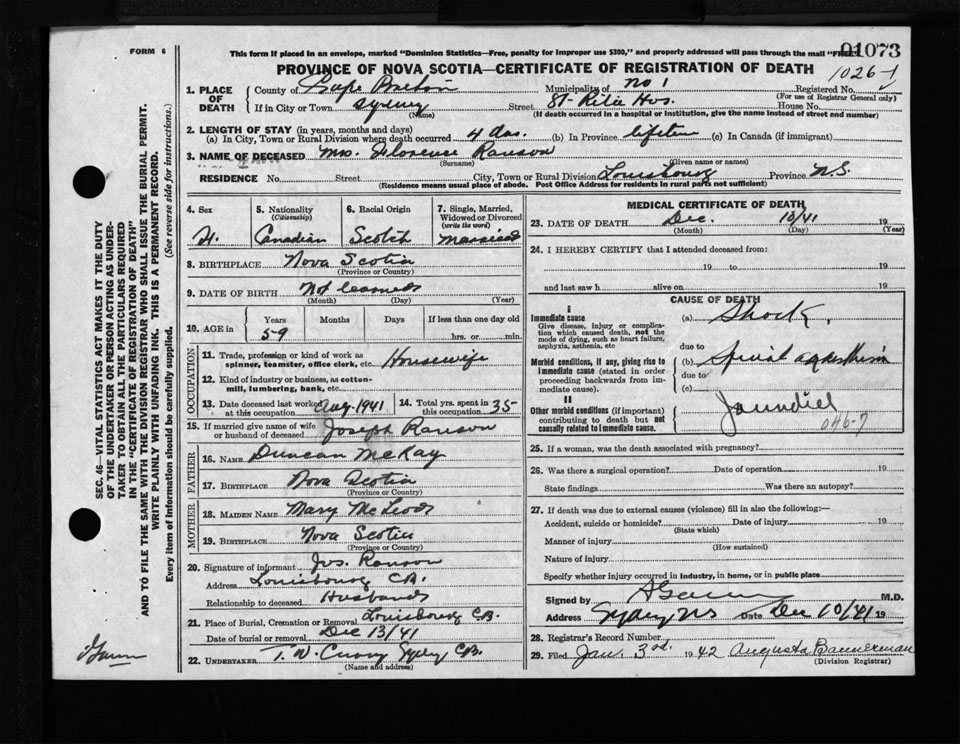 FORM 6
This form if placed in an envelope, marked "Dominion Statistics—Free, penalty for improper use $300," and properly addressed will pass through the mail "FREE"
01073
PROVINCE OF NOVA SCOTIA—CERTIFICATE OF REGISTRATION OF DEATH
1026-1
1. PLACE OF DEATH
County of Cape Breton Municipality of No 1 Registered No.
(For use of Registrar General only)
If in City or Town Sydney Street St-Rita Hos. House No.
(Name) (If death occurred in a hospital or institution, give the name instead of street and number)
2. LENGTH OF STAY (in years, months and days)
(a) In City, Town or Rural Division where death occurred 4 das. (b) In Province lifetime (c) In Canada (if immigrant)
3. NAME OF DECEASED Mrs. Florence Ranson
(Surname) (Given name or names)
RESIDENCE No. Street City, Town or Rural Division Louisbourg Province N.S.
(Residence means usual place of abode. Post Office Address for residents in rural parts not sufficient)
4. Sex
5. Nationality (Citizenship) Canadian
6. Racial Origin Scotch
7. Single, Married, Widowed or Divorced (write the word) Married
8. BIRTHPLACE Nova Scotia
(Province or Country)
9. DATE OF BIRTH Not learned
(Month) (Day) (Year)
10. AGE in Years Months Days If less than one day old
59 hrs. or min.
OCCUPATION
11. Trade, profession or kind of work as spinner, teamster, office clerk, etc. Housewife
12. Kind of industry or business, as cotton-mill, lumbering, bank, etc.
13. Date deceased last worked at this occupation Aug. 1941
14. Total yrs. spent in this occupation 35
15. If married give name of wife or husband of deceased Joseph Ranson
FATHER
16. NAME Duncan McKay
17. BIRTHPLACE Nova Scotia
(Province or Country)
MOTHER
18. MAIDEN NAME Mary McLeod
19. BIRTHPLACE Nova Scotia
(Province or Country)
20. Signature of informant Jos. Ranson
Address Louisbourg C.B.
Relationship to deceased Husband
21. Place of Burial, Cremation or Removal Louisbourg C.B.
Date of burial or removal Dec 13/41
22. UNDERTAKER T. W. Curry Sydney C.B.
(Name and address)
MEDICAL CERTIFICATE OF DEATH
23. DATE OF DEATH Dec. 10/41 19
(Month) (Day) (Year)
24. I HEREBY CERTIFY that I attended deceased from:
19 to 19
and last saw h alive on 19
CAUSE OF DEATH
I
Immediate cause
Give disease, injury or complication which caused death, not the mode of dying, such as heart failure, asphyxia, asthenia, etc
(a) Shock.
due to
Morbid conditions, if any, giving rise to immediate cause (stated in order proceeding backwards from immediate cause).
(b) Spinal
due to
(c)
II
Other morbid conditions (if important) contributing to death but not causally related to immediate cause.
Jaundice
046-7
25. If a woman, was the death associated with pregnancy?
26. Was there a surgical operation? Date of operation 19
State findings Was there an autopsy?
27. If death was due to external causes (violence) fill in also the following:—
Accident, suicide or homicide? Date of injury 19
(State which)
Manner of injury
(How sustained)
Nature of injury
Specify whether injury occurred in industry, in home, or in public place
Signed by M.D.
Address Sydney NS Date Dec 10/41 19
28. Registrar's Record Number
29. Filed Jan. 3rd. 1942 Augusta Bannerman
(Division Registrar)
SEC. 46—VITAL STATISTICS ACT MAKES IT THE DUTY
OF THE UNDERTAKER OR PERSON ACTING AS UNDER-
TAKER TO OBTAIN ALL THE PARTICULARS REQUIRED
IN THE "CERTIFICATE OF REGISTRATION OF DEATH"
AND TO FILE THE SAME WITH THE DIVISION REGISTRAR WHO SHALL ISSUE THE BURIAL PERMIT.
WRITE PLAINLY WITH UNFADING INK. THIS IS A PERMANENT RECORD.
Every item of Information should be carefully supplied. (See reverse side for instructions.)